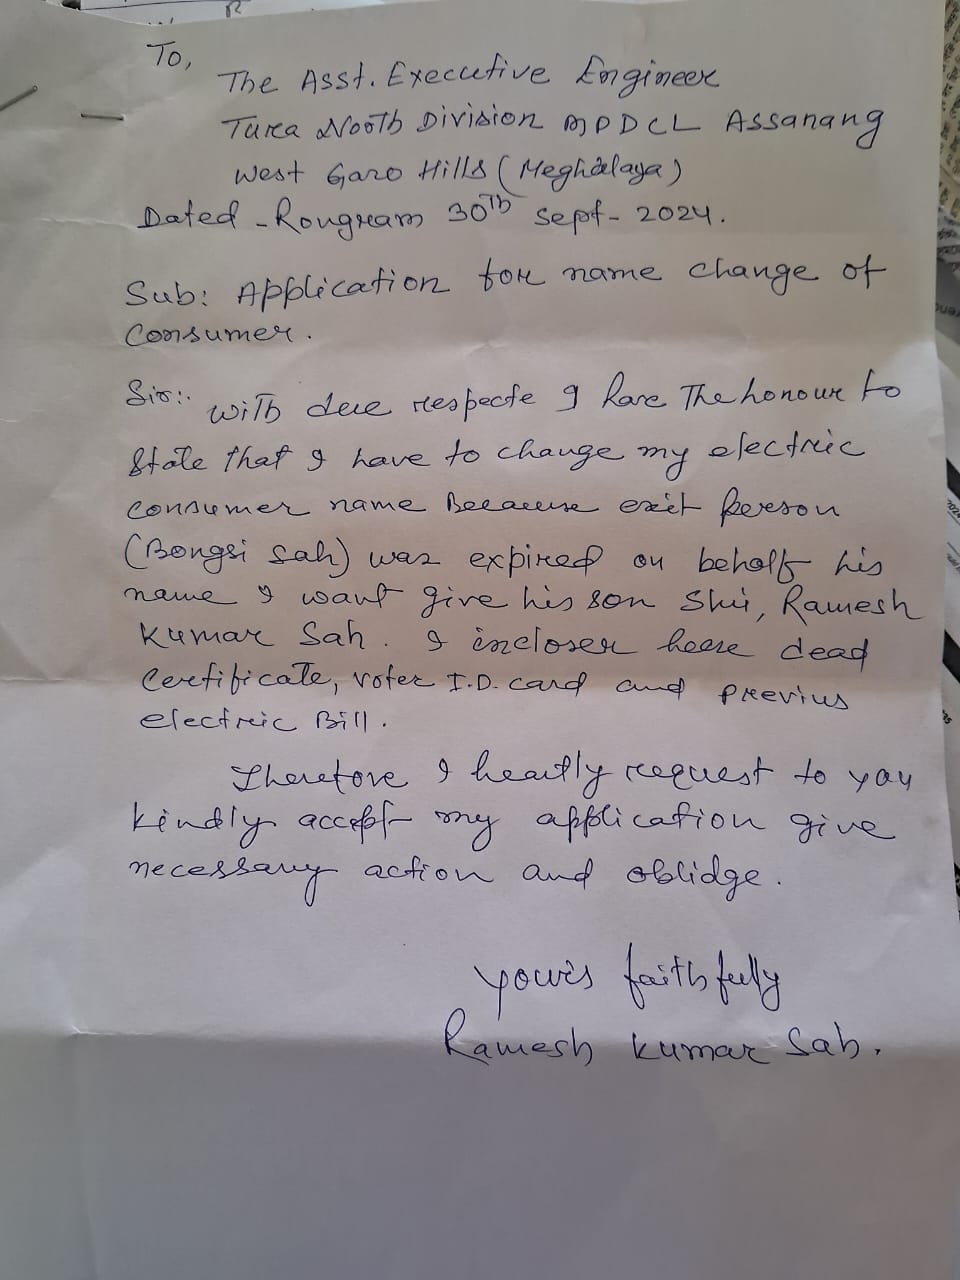 To,
The Asst. Executive Engineer
Tura North Division MPDCL Assanang
West Garo Hills (Meghalaya)
Dated - Rongram 30th Sept - 2024.
Sub: Application for name change of
Consumer.
Sir:. with due respecte I have The honour to
State that I have to change my electric
consumer name Because exit person
(Bongsi Sah) was expired on behalf his
name I want give his son Shri, Ramesh
Kumar Sah. I incloser heere dead
Certificate, voter I.D. card and previus
electric Bill.
Therefore I heartly request to you
kindly accept my application give
necessary action and oblidge.
yours faithfully
Ramesh Kumar Sah.